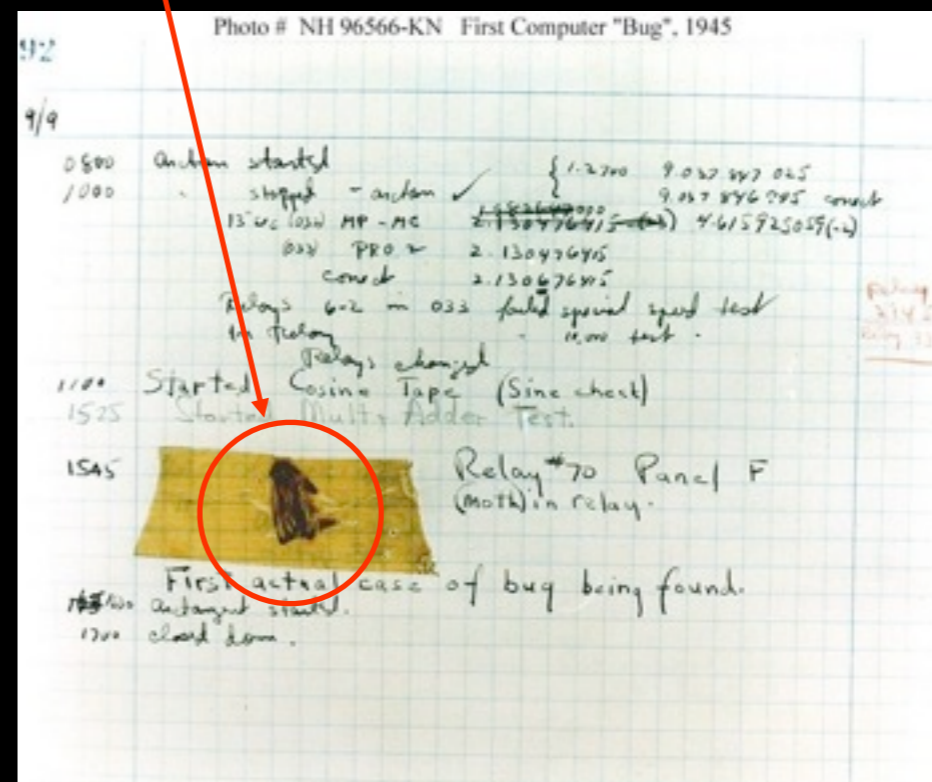 Photo # NH 96566-KN First Computer "Bug", 1945
92
9/9
0800 antan started
1000 " stopped - antan ✓
{ 1.2700 9.037 847 025
9.037 846 995 correct
13"uc (032) MP-MC 4.615925059(-2)
(033) PRO 2 2.130476415
correct 2.130676415
Relays 6-2 in 033 failed special speed test
in relay " 10.000 test .
Relays changed
1100 Started Cosine Tape (Sine check)
1525 Started Mult+ Adder Test.
1545 Relay #70 Panel F
(moth) in relay.
First actual case of bug being found.
antangent started.
1700 closed down.